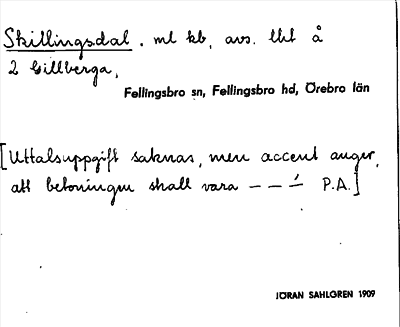 Skillingsdal. ml kb, avs. lht å
2 Gillberga,
Fellingsbro sn, Fellingsbro hd, Örebro län
[Uttalsuppgift saknas, men accent anger,
att betoningen skall vara – – –́ P.A.]
JÖRAN SAHLGREN 1909